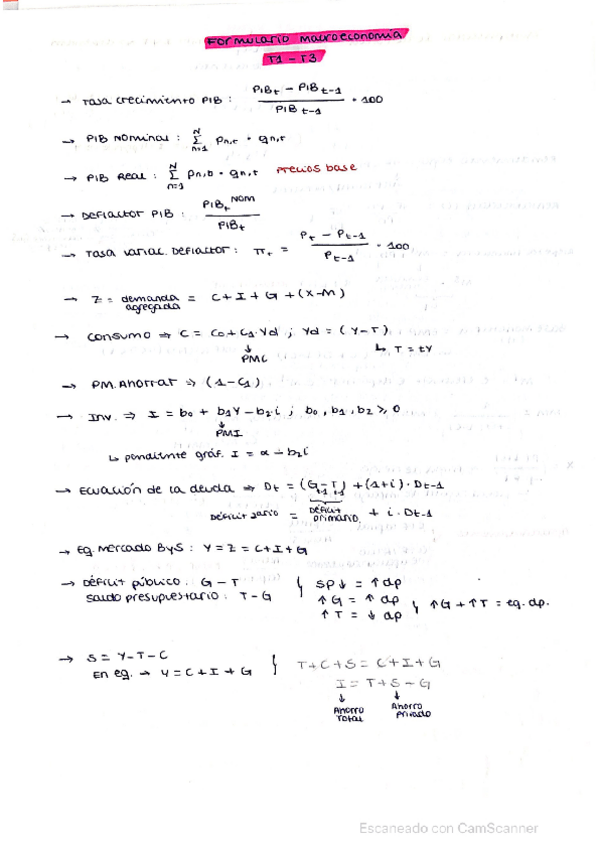 Formulario macroeconomia
T1 - T3
→ Tasa crecimiento PIB : (PIBt - PIBt-1) / PIBt-1 · 100
→ PIB Nominal : Σ(n=1, N) Pn,t · qn,t
→ PIB Real : Σ(n=1, N) Pn,0 · qn,t Precios base
→ Deflactor PIB : PIBt^NOM / PIBt
→ Tasa variac. Deflactor : πt = (Pt - Pt-1) / Pt-1 · 100
→ Z = demanda agregada = C + I + G + (X-M)
→ Consumo ⇒ C = C0 + C1·Yd ; Yd = (Y-T)
↓ PMC ↳ T = tY
→ PM. Ahorrar ⇒ (1-C1)
→ Inv. ⇒ I = b0 + b1Y - b2i ; b0, b1, b2 ≥ 0
↓ PMI
↳ pendiente gráf. I = α - b2i
→ Ecuación de la deuda ⇒ Dt = (G-T) + (1+i) · Dt-1
= Déficit primario + i · Dt-1
→ Eq. Mercado ByS : Y = Z = C + I + G
→ Déficit público : G - T } SP↓ = ↑dp
Saldo presupuestario : T - G ↑G = ↑dp } ↑G + ↑T = eq. dp.
↑T = ↓dp
→ S = Y-T-C } T + C + S = C + I + G
En eq. → Y = C + I + G I = T + S - G
↓ Ahorro total ↓ Ahorro privado
Escaneado con CamScanner